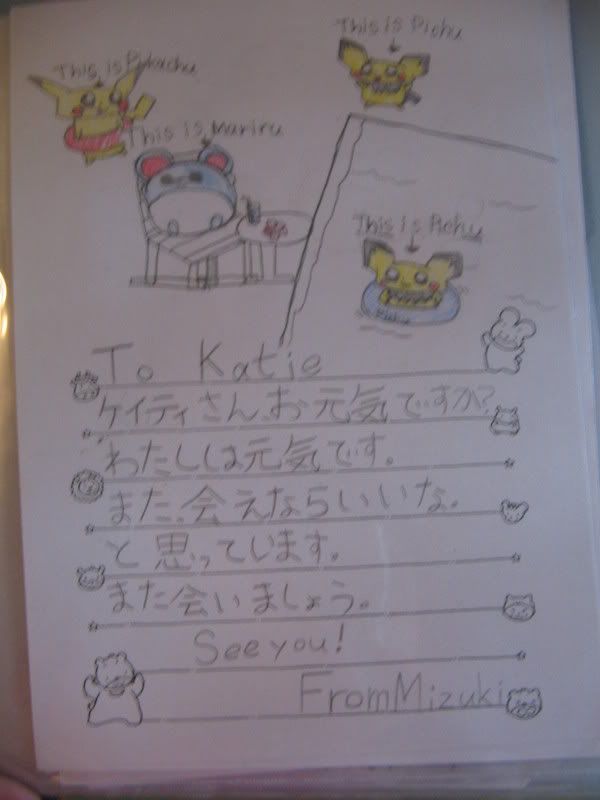 This is Pichu
This is Pikachu
This is Mariru
This is Pichu
To Katie
ケイティさんお元気ですか?
わたしは元気です。
また、会えならいいな。
と思っています。
また会いましょう。
See you!
From Mizuki